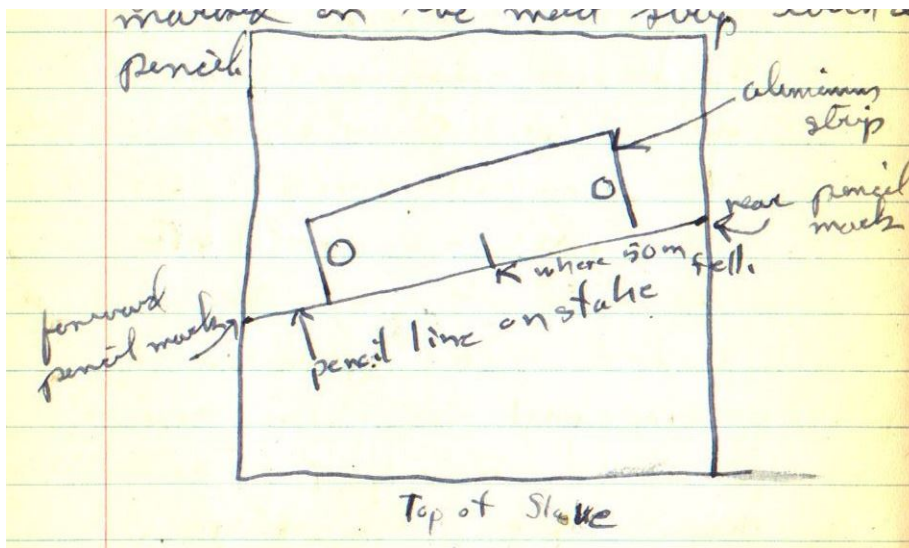 marked on the metal strip
pencil.
aluminum
strip
rear pencil
mark
where 50m fell.
forward
pencil mark
pencil line on stake
Top of Stake